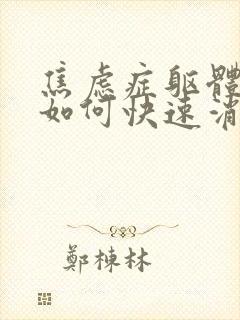 焦虑症躯體
如何快速消
鄭棟林